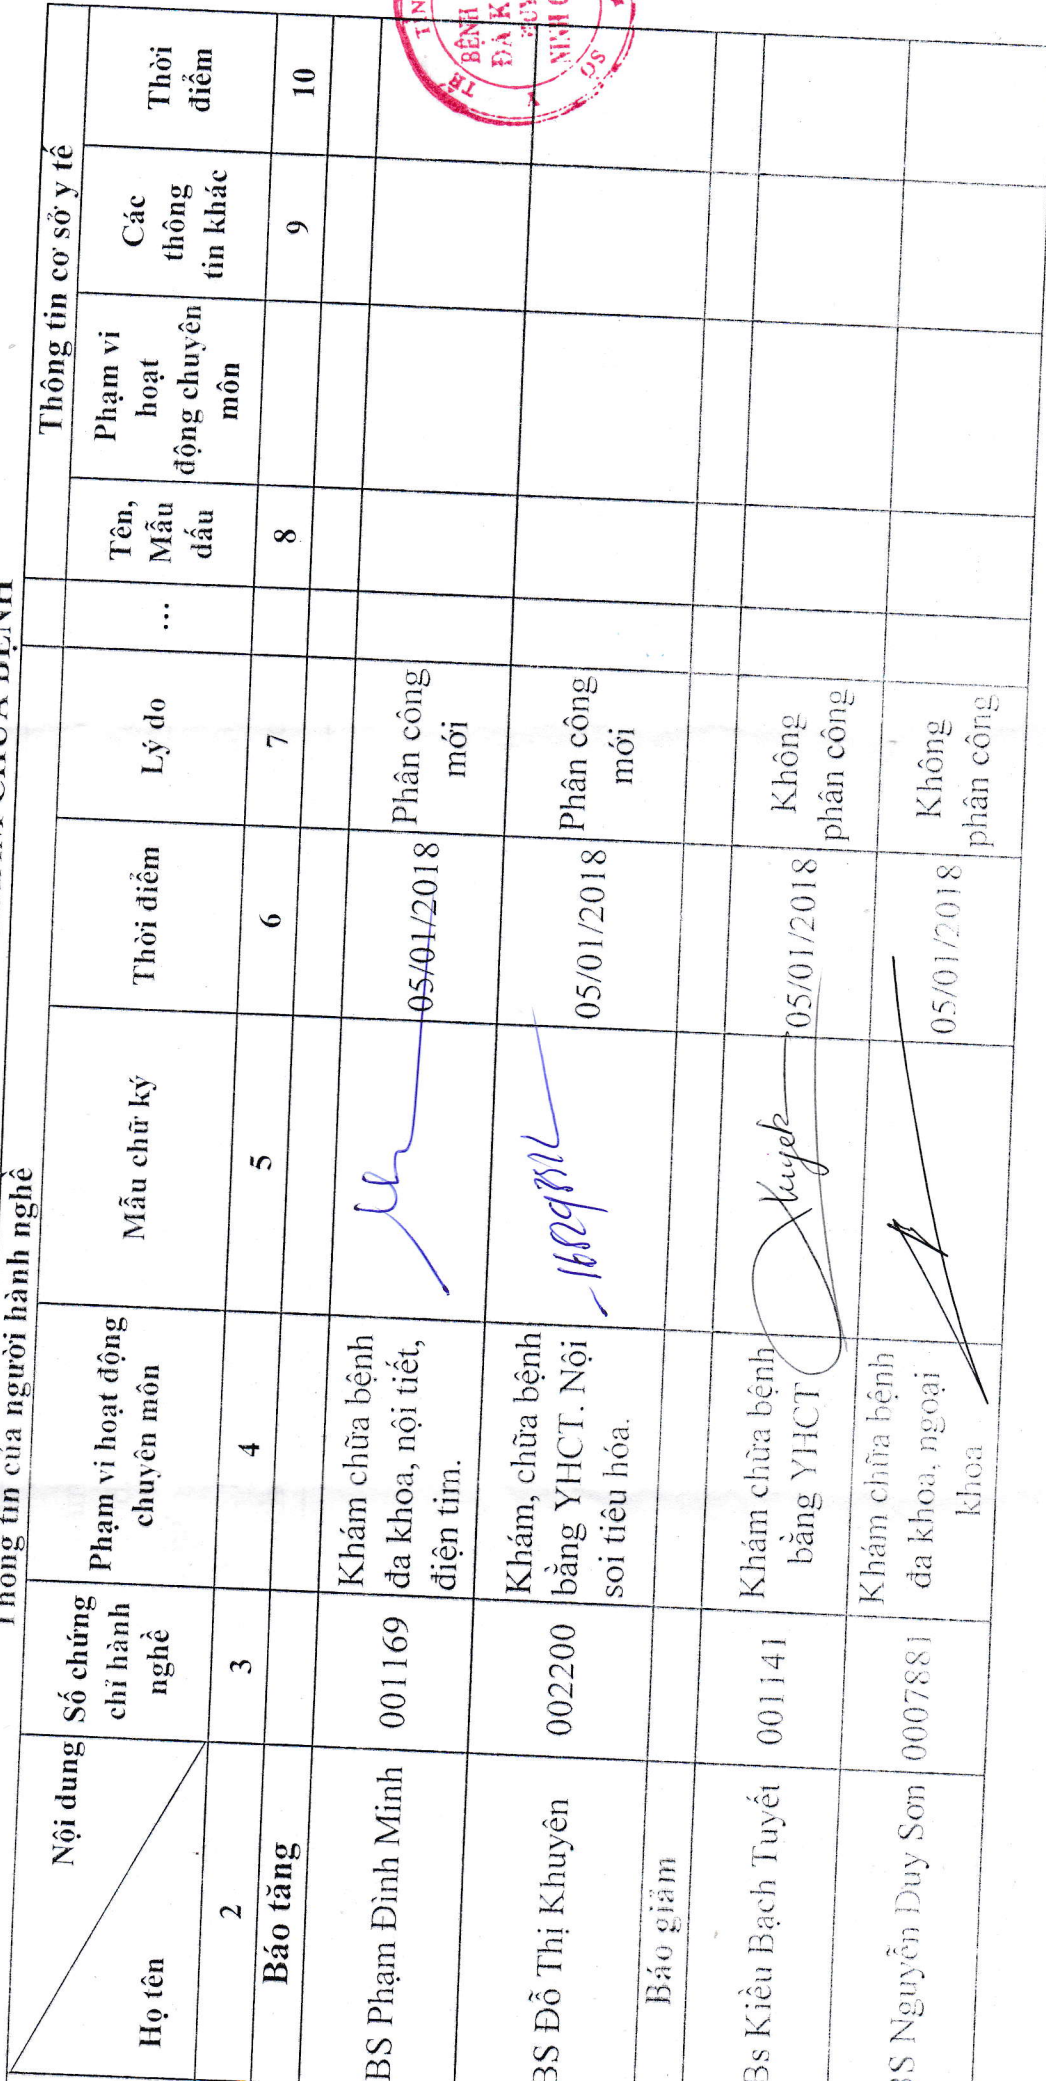 Thông tin của người hành nghề
Thông tin cơ sở y tế
Nội dung
Họ tên
Số chứng
chỉ hành
nghề
Phạm vi hoạt động
chuyên môn
Mẫu chữ ký
Thời điểm
Lý do
...
Tên,
Mẫu
dấu
Phạm vi
hoạt
động chuyên
môn
Các
thông
tin khác
Thời
điểm
2
3
4
5
6
7
8
9
10
Báo tăng
BS Phạm Đình Minh
001169
Khám chữa bệnh
đa khoa, nội tiết,
điện tim.
05/01/2018
Phân công
mới
BS Đỗ Thị Khuyên
002200
Khám, chữa bệnh
bằng YHCT. Nội
soi tiêu hóa.
05/01/2018
Phân công
mới
Báo giảm
Bs Kiều Bạch Tuyết
001141
Khám chữa bệnh
bằng YHCT
05/01/2018
Không
phân công
BS Nguyễn Duy Sơn
0007881
Khám chữa bệnh
đa khoa, ngoại
khoa
05/01/2018
Không
phân công
BỆNH
ĐA K